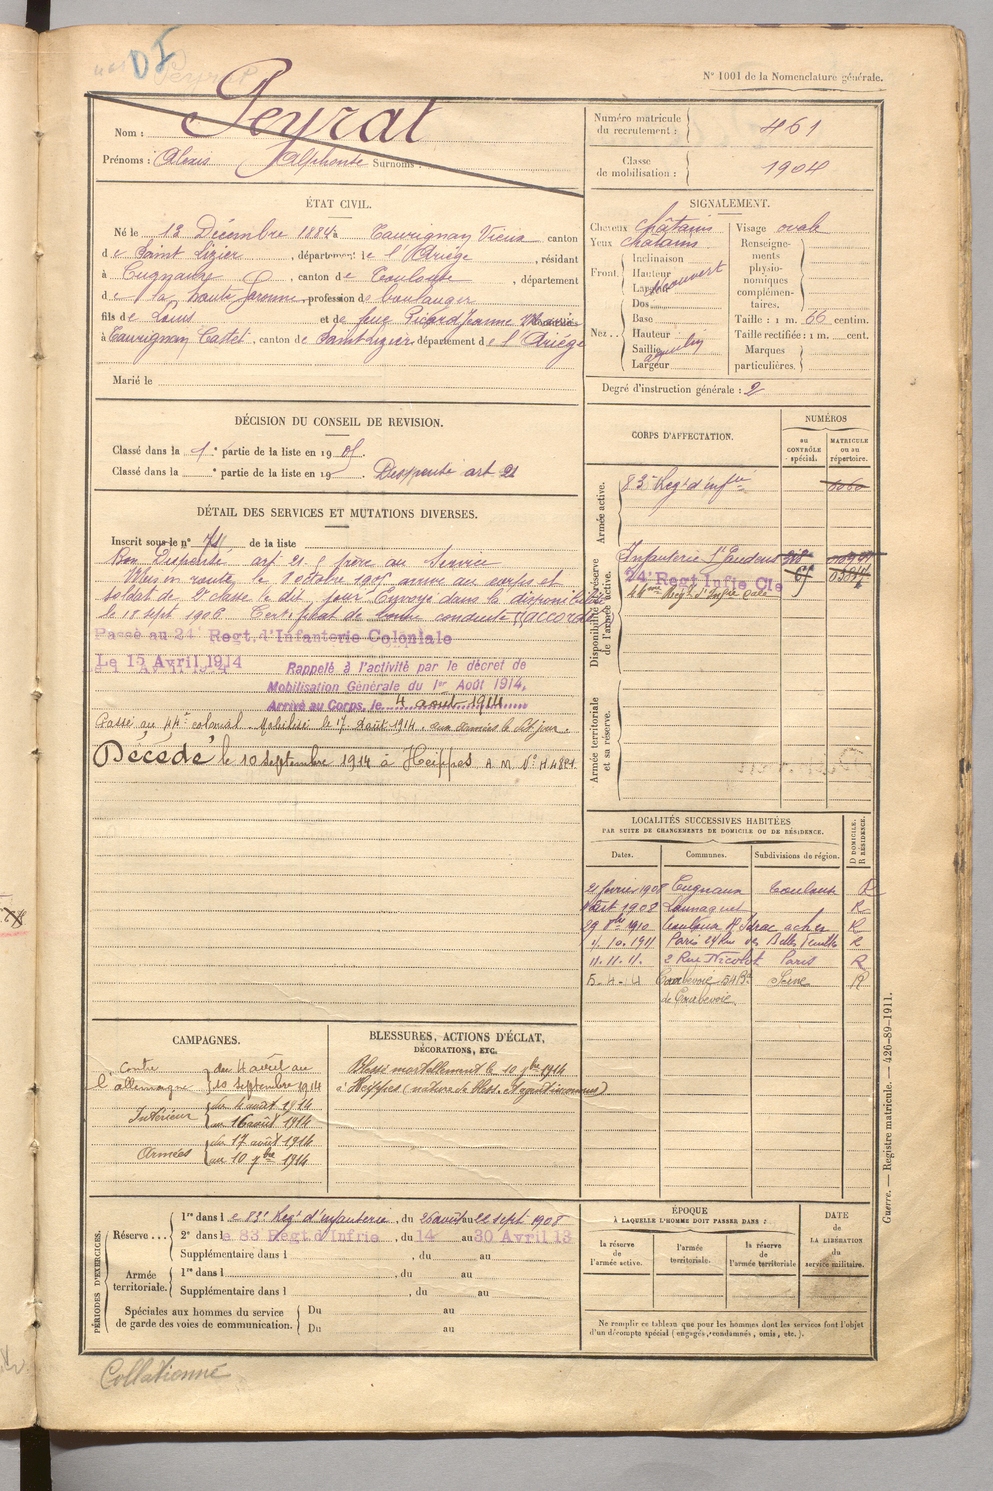 DI
N° 1001 de la Nomenclature générale.
Nom : Peyrat
Prénoms : Alexis Alphonse Surnoms :
Numéro matricule du recrutement : 461
Classe de mobilisation : 1904
ÉTAT CIVIL.
Né le 13 Décembre 1884 à Taurignan Vieux canton
de Saint Lizier, département de l'Ariège, résidant
à Cugnaux, canton de Toulouse, département
de la haute Garonne, profession de boulanger
fils de Louis et de feue Picard Jeanne
à Taurignan Castet, canton de Saint Lizier département de l'Ariège
Marié le
SIGNALEMENT.
Cheveux châtains
Yeux châtains
Front. Inclinaison
Hauteur
Largeur
découvert
Nez. Dos
Base
Hauteur
Saillie
Largeur
aquilin
Visage ovale
Renseignements physionomiques complémentaires.
Taille : 1 m. 66 centim.
Taille rectifiée : 1 m. cent.
Marques particulières.
Degré d'instruction générale : 2
DÉCISION DU CONSEIL DE REVISION.
Classé dans la 1e partie de la liste en 1905.
Classé dans la e partie de la liste en 19 . Dispensé art 21
DÉTAIL DES SERVICES ET MUTATIONS DIVERSES.
Inscrit sous le n° de la liste
Bon Dispensé art 21 § frère au Service
Mis en route le 8 octobre 1905 arrivé au corps et
soldat de 2e classe le dit jour Envoyé dans la disponibilité
le 18 sept 1906 Certificat de bonne conduite accordé
Passé au 24e Regt. d'Infanterie Coloniale
Le 15 Avril 1914
Rappelé à l'activité par le décret de
Mobilisation Générale du 1er Août 1914,
Arrivé au Corps, le 4 août 1914
Passé au 44e colonial. Mobilisé le 7 Août 1914. aux armées le dit jour.
Décédé le 10 septembre 1914 à Heippes A. M. N° H 4824
CORPS D'AFFECTATION.
NUMÉROS
au contrôle spécial.
matricule ou au répertoire.
Armée active.
83e Regt d'infie
Disponibilité et réserve de l'armée active.
Infanterie St Gaudens
24e Regt Infie Cle
44eme Regt d'Infie Cale
Armée territoriale et sa réserve.
LOCALITÉS SUCCESSIVES HABITÉES
PAR SUITE DE CHANGEMENTS DE DOMICILE OU DE RÉSIDENCE.
Dates. Communes. Subdivisions de région. D DOMICILE. R RÉSIDENCE.
21 février 1908 Cugnaux Toulouse R
Août 1908 Launaguet R
29 8bre 1910 Toulouse R
4. 10. 1911 Paris 24 Rue des Belles feuilles R
11. 11. 11. 2 Rue Nicolo Paris R
5. 4. 14 Courbevoie 54 Bd de Courbevoie Seine R
CAMPAGNES.
Contre l'allemagne du 4 août au 10 septembre 1914
Intérieur du 4 août 1914 au 16 août 1914
Armées du 17 août 1914 au 10 7bre 1914
BLESSURES, ACTIONS D'ÉCLAT,
DÉCORATIONS, ETC.
Blessé mortellement le 10 7bre 1914
à Heippes (nature de bless. et agent inconnus)
PÉRIODES D'EXERCICES.
Réserve... 1re dans le 83e Regt d'infanterie, du 26 août au 22 sept 1908
2e dans le 83 Régt d'Infrie, du 14 au 30 Avril 13
Supplémentaire dans l , du au
Armée territoriale. 1re dans l , du au
Supplémentaire dans l , du au
Spéciales aux hommes du service de garde des voies de communication. Du au
Du au
ÉPOQUE
À LAQUELLE L'HOMME DOIT PASSER DANS :
la réserve de l'armée active.
l'armée territoriale.
la réserve de l'armée territoriale
DATE de LA LIBÉRATION du service militaire.
Ne remplir ce tableau que pour les hommes dont les services font l'objet
d'un décompte spécial (engagés, condamnés, omis, etc.).
Guerre. — Registre matricule. — 426-89-1911.
Collationné